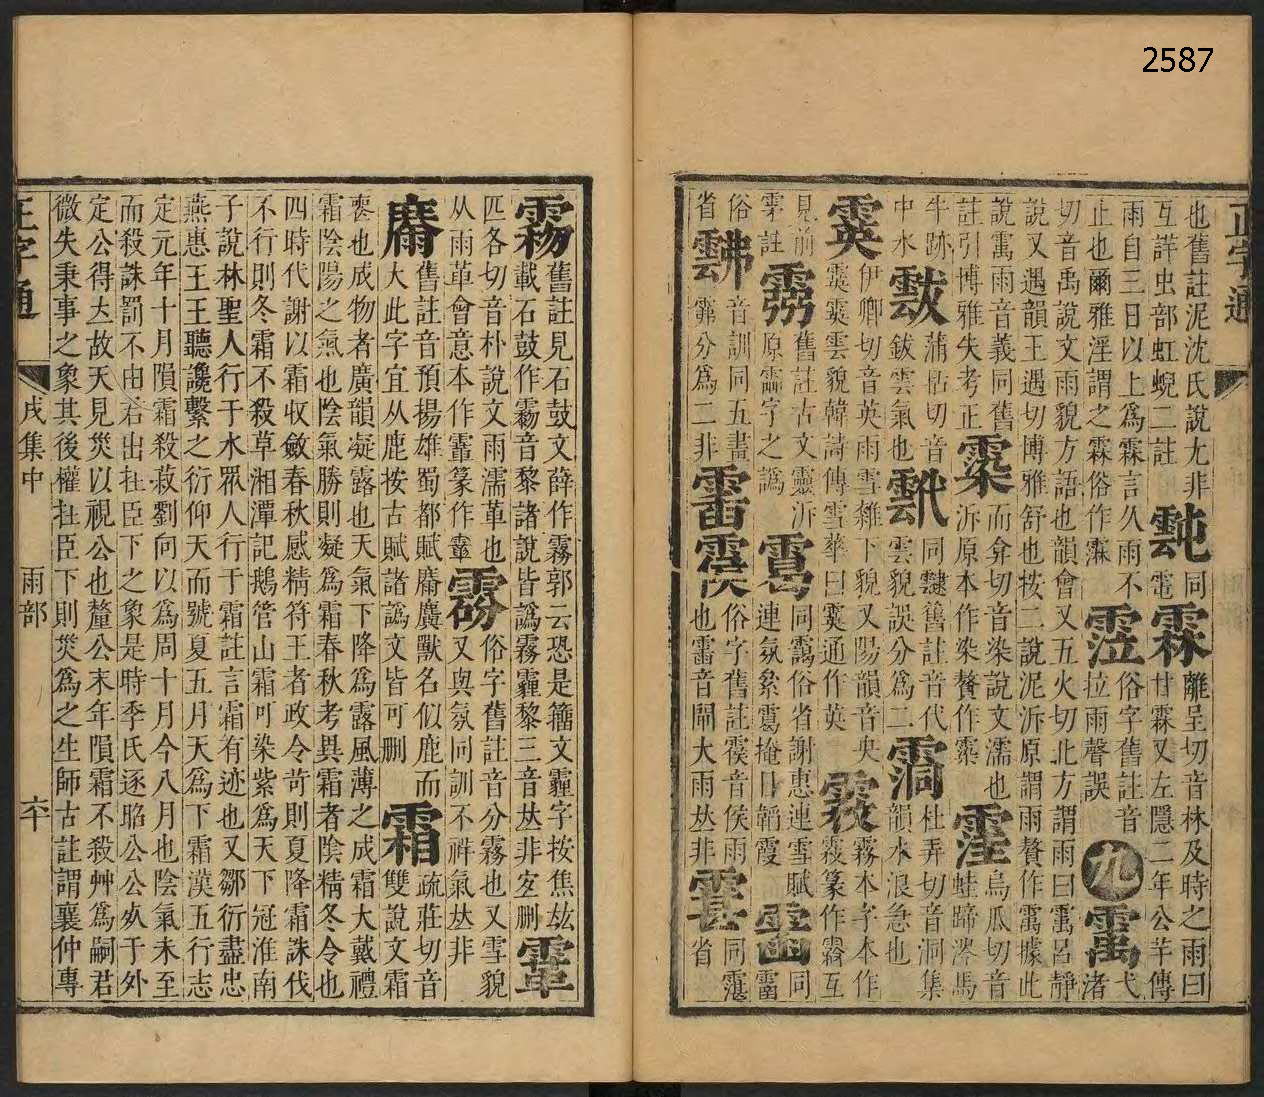 2587
正字通
也舊註泥沈氏說尤非䨴同霳霖離呈切音林及時之雨曰
互詳虫部虹蜺二註甘霖又左隱二年公羊傳
雨自三日以上爲霖言久雨不䨜俗字舊註音
止也爾雅淫謂之霖俗作霖拉雨聲誤九䨞弋渚
切音禹說文雨貌方語也韻會又五火切北方謂雨曰䨞呂靜
說又遇韻王遇切博雅舒也按二說泥泝原謂雨贅作䨞據此
說䨞雨音義同舊䨬而弇切音染說文濡也䨟烏瓜切音
註引博雅失考正泝原本作染贅作䨬蛙蹄涔馬
牛跡䨚蒲沽切音同靆舊註音代䨝杜弄切音洞集
中水鈸雲氣也雲貌誤分爲二韻水浪急也
霙伊卿切音英雨雪雜下貌又陽韻音央䨦霧本字本作
霙霙雲貌韓詩傳雪華曰霙通作英篆作互
見前䨘舊註古文靈泝䨠同靄俗省謝惠連雪賦同
霁註原霝字之譌連氛絫䨠掩日韜霞霤
俗音訓同五畫俗字舊註䨧音侯雨同霮
省霏分爲二非也䨜音鬧大雨𠀤非省
霚舊註見石鼓文薛作霧郭云恐是籀文霾字按焦竑
載石鼓作霧音黎諸說皆譌霧霾黎三音𠀤非宜刪
匹各切音朴說文雨濡革也雰俗字舊註音分霧也又雪貌
从雨革會意本作䨣篆作䨣又與氛同訓不祥氣𠀤非
舊註音預揚雄蜀都賦䴪麌獸名似鹿而霜疏莊切音
大此字宜从鹿按古賦諸譌文皆可刪雙說文霜
喪也成物者廣韻凝露也天氣下降爲露風薄之成霜大戴禮
霜陰陽之氣也陰氣勝則凝爲霜春秋考異霜者陰精冬令也
四時代謝以霜收斂春秋感精符王者政令苛則夏降霜誅伐
不行則冬霜不殺草湘潭記鵝管山霜可染紫爲天下冠淮南
子說林聖人行于水眾人行于霜註言霜有迹也又鄒衍盡忠
燕惠王王聽讒繫之衍仰天而號夏五月天爲下霜漢五行志
定元年十月隕霜殺菽劉向以爲周十月今八月也陰氣未至
而殺誅罰不由君出在臣下之象是時季氏逐昭公公死于外
定公得立故天見災以視公也釐公末年隕霜不殺艸爲嗣君
微失秉事之象其後權在臣下則災爲之生師古註謂襄仲專
正字通
戌集中
雨部
六十